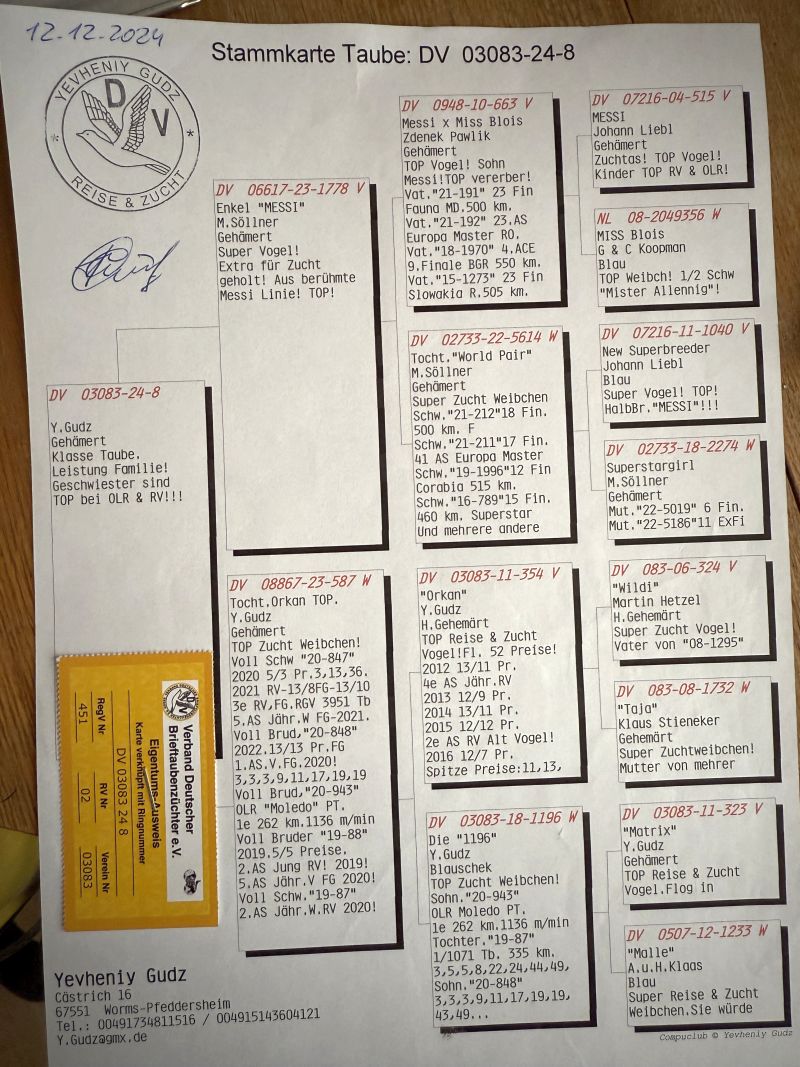 12.12.2024
Stammkarte Taube: DV 03083-24-8
YEVHENIY GUDZ
DV
REISE & ZUCHT
DV 03083-24-8
Y.Gudz
Gehämert
Klasse Taube.
Leistung Familie!
Geschwiester sind
TOP bei OLR & RV!!!
DV 06617-23-1778 V
Enkel "MESSI"
M.Söllner
Gehämert
Super Vogel!
Extra für Zucht
geholt! Aus berühmte
Messi Linie! TOP!
DV 08867-23-587 W
Tocht.Orkan TOP.
Y.Gudz
Gehämert
TOP Zucht Weibchen!
Voll Schw "20-847"
2020 5/3 Pr.3,13,36.
2021 RV-13/8FG-13/10
3e RV,FG.RGV 3951 Tb
5.AS Jähr.W FG-2021.
Voll Brud,"20-848"
2022.13/13 Pr.FG
1.AS.V.FG.2020!
3,3,3,9,11,17,19,19
Voll Brud,"20-943"
OLR "Moledo" PT.
1e 262 km.1136 m/min
Voll Bruder "19-88"
2019.5/5 Preise.
2.AS Jung RV! 2019!
5.AS Jähr.V FG 2020!
Voll Schw."19-87"
2.AS Jähr.W.RV 2020!
DV 0948-10-663 V
Messi x Miss Blois
Zdenek Pawlik
Gehämert
TOP Vogel! Sohn
Messi!TOP vererber!
Vat."21-191" 23 Fin
Fauna MD.500 km.
Vat."21-192" 23.AS
Europa Master RO.
Vat."18-1970" 4.ACE
9.Finale BGR 550 km.
Vat."15-1273" 23 Fin
Slowakia R.505 km.
DV 02733-22-5614 W
Tocht."World Pair"
M.Söllner
Gehämert
Super Zucht Weibchen
Schw."21-212"18 Fin.
500 km. F
Schw."21-211"17 Fin.
41 AS Europa Master
Schw."19-1996"12 Fin
Corabia 515 km.
Schw."16-789"15 Fin.
460 km. Superstar
Und mehrere andere
DV 03083-11-354 V
"Orkan"
Y.Gudz
H.Gehemärt
TOP Reise & Zucht
Vogel!Fl. 52 Preise!
2012 13/11 Pr.
4e AS Jähr.RV
2013 12/9 Pr.
2014 13/11 Pr.
2015 12/12 Pr.
2e AS RV Alt Vogel!
2016 12/7 Pr.
Spitze Preise:11,13,
DV 03083-18-1196 W
Die "1196"
Y.Gudz
Blauschek
TOP Zucht Weibchen!
Sohn."20-943"
OLR Moledo PT.
1e 262 km.1136 m/min
Tochter."19-87"
1/1071 Tb. 335 km.
3,5,5,8,22,24,44,49,
Sohn."20-848"
3,3,3,9,11,17,19,19,
43,49...
DV 07216-04-515 V
MESSI
Johann Liebl
Gehämert
Zuchtas! TOP Vogel!
Kinder TOP RV & OLR!
NL 08-2049356 W
MISS Blois
G & C Koopman
Blau
TOP Weibch! 1/2 Schw
"Mister Allennig"!
DV 07216-11-1040 V
New Superbreeder
Johann Liebl
Blau
Super Vogel! TOP!
HalbBr."MESSI"!!!
DV 02733-18-2274 W
Superstargirl
M.Söllner
Gehämert
Mut."22-5019" 6 Fin.
Mut."22-5186"11 ExFi
DV 083-06-324 V
"Wildi"
Martin Hetzel
H.Gehemärt
Super Zucht Vogel!
Vater von "08-1295"
DV 083-08-1732 W
"Taja"
Klaus Stieneker
Gehemärt
Super Zuchtweibchen!
Mutter von mehrer
DV 03083-11-323 V
"Matrix"
Y.Gudz
Gehämert
TOP Reise & Zucht
Vogel.Flog in
DV 0507-12-1233 W
"Malle"
A.u.H.Klaas
Blau
Super Reise & Zucht
Weibchen.Sie würde
Verband Deutscher
Brieftaubenzüchter e.V.
Eigentums-Ausweis
Karte verknüpft mit Ringnummer
DV 03083 24 8
RegV Nr RV Nr Verein Nr
451 02 03083
Yevheniy Gudz
Cästrich 16
67551 Worms-Pfeddersheim
Tel.: 00491734811516 / 004915143604121
Y.Gudz@gmx.de
Compuclub © Yevheniy Gudz